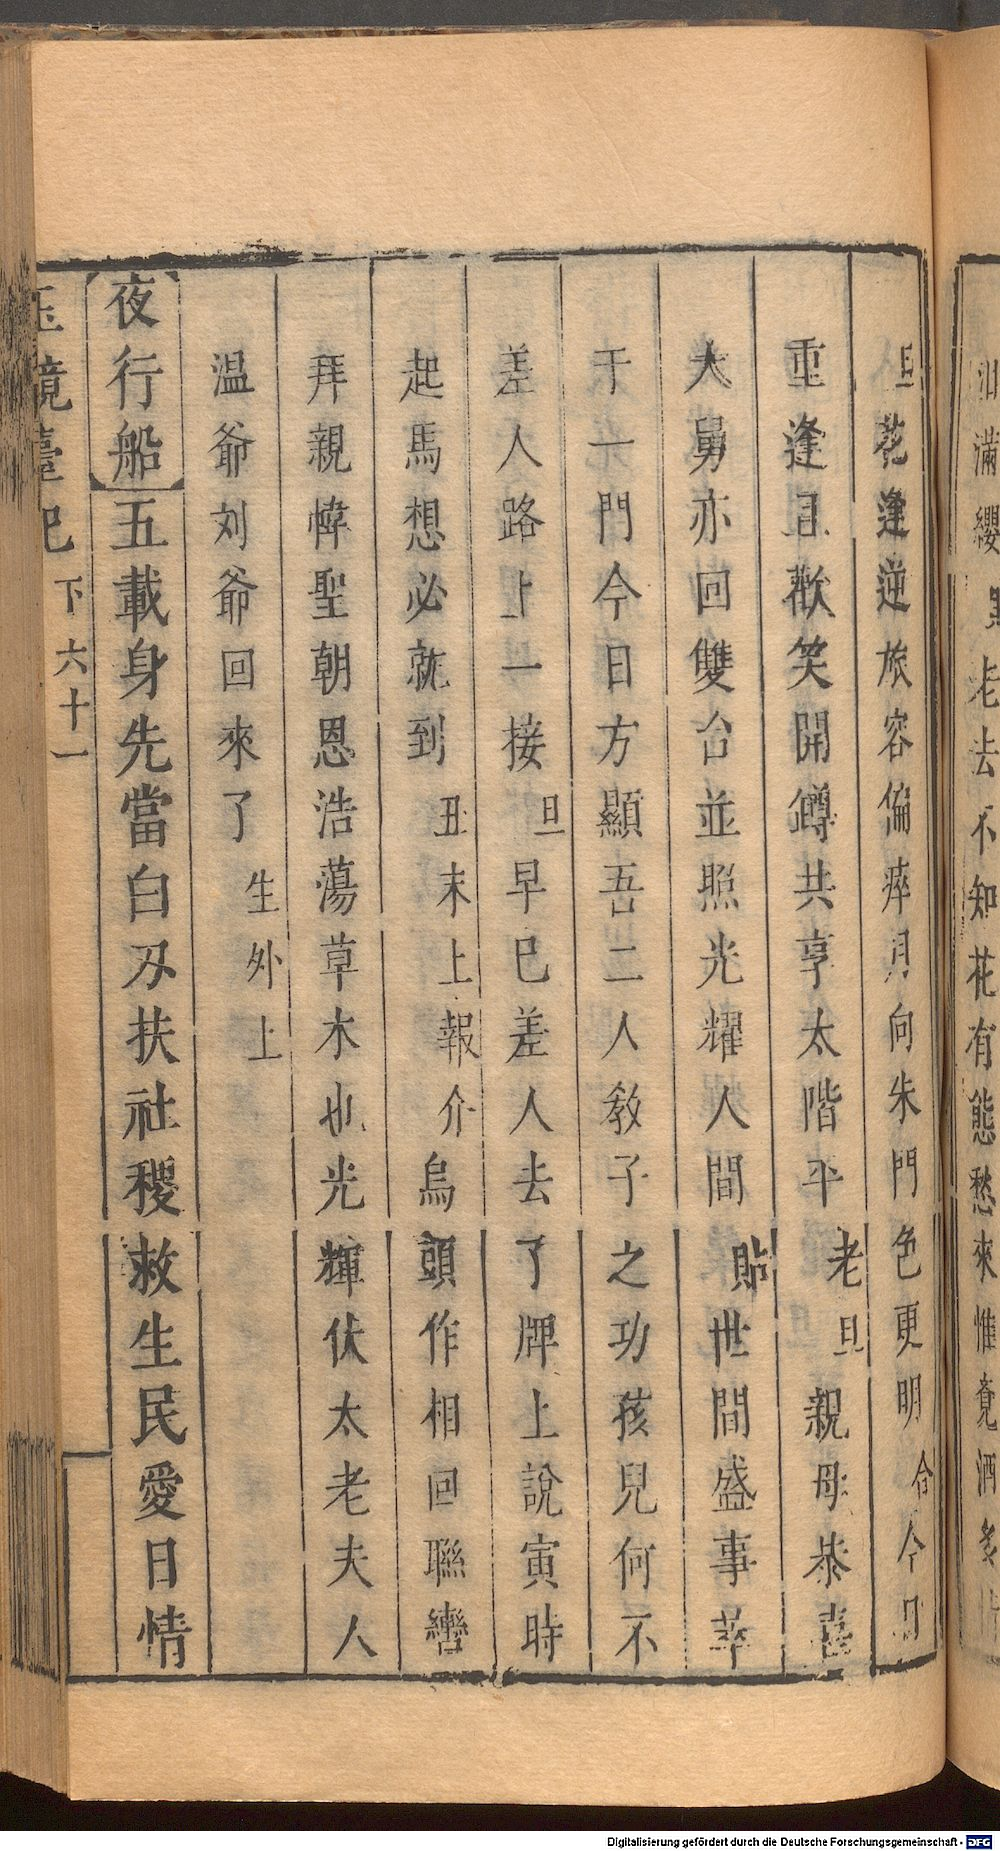 汨滿纓 老去不知花有態愁來惟覓酒多
旦花逢逆旅容偏瘁月向朱門色更明合今日
重逢且歡笑開罇共享太階平老旦親母恭喜
大舅亦回雙台並照光耀人間貼世間盛事萃
于一門今日方顯吾二人教子之功孩兒何不
差人路上一接旦早已差人去了牌上說寅時
起馬想必就到丑末上報介烏頭作相回聯轡
拜親幃聖朝恩浩蕩草木也光輝伏太老夫人
温爺刘爺回來了生外上
【夜行船】五載身先當白刃扶社稷救生民愛日情
玉鏡臺記 下 六十一
Digitalisierung gefördert durch die Deutsche Forschungsgemeinschaft - DFG